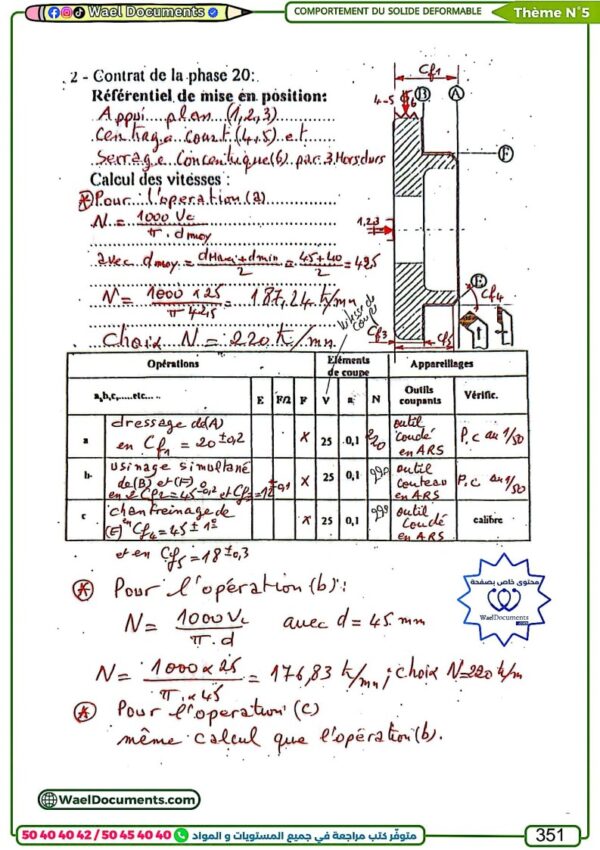 Wael Documents
COMPORTEMENT DU SOLIDE DEFORMABLE
Thème N°5
2 - Contrat de la phase 20:
Référentiel de mise en position:
Appui plan (1,2,3)
Centrage court (4,5) et
Serrage concentrique(6) par 3 Mors durs
Calcul des vitesses :
Pour l'opération (a)
N = 1000 Vc / π . dmoy
avec dmoy = dMaxi + dmin / 2 = 45+40 / 2 = 425
N = 1000 x 25 / π 42,5 = 187,24 tr/mn
Choix N = 220 tr/mn
Cf1
B
A
4-5
6
F
1,2,3
E
Cf4
Cf3
Cf5
vitesse de coupe
Opérations
Eléments de coupe
Appareillages
a,b,c,.....etc... ..
E
F/2
F
V
a
N
Outils coupants
Vérific.
a
dressage de(A)
en Cf1 = 20 ±0,2
x
25
0,1
220
outil coudé en ARS
P.c au 1/50
b
usinage simultané
de(B) et (F)
x
25
0,1
220
outil couteau en ARS
P.c au 1/50
c
chanfreinage de
(E) en Cf4 = 45 ± 1°
x
25
0,1
220
outil coudé en ARS
calibre
et en Cf5 = 18 ±0,3
Pour l'opération (b):
N = 1000 Vc / π . d avec d = 45 mm
N = 1000 x 25 / π . x 45 = 176,83 tr/mn ; choix N=220 tr/m
Pour l'operation (c)
même calcul que l'opération (b).
محتوى خاص بصفحة
WaelDocuments
WaelDocuments.com
50 40 40 42 / 50 45 40 40
متوفّر كتب مراجعة في جميع المستويات و المواد
351